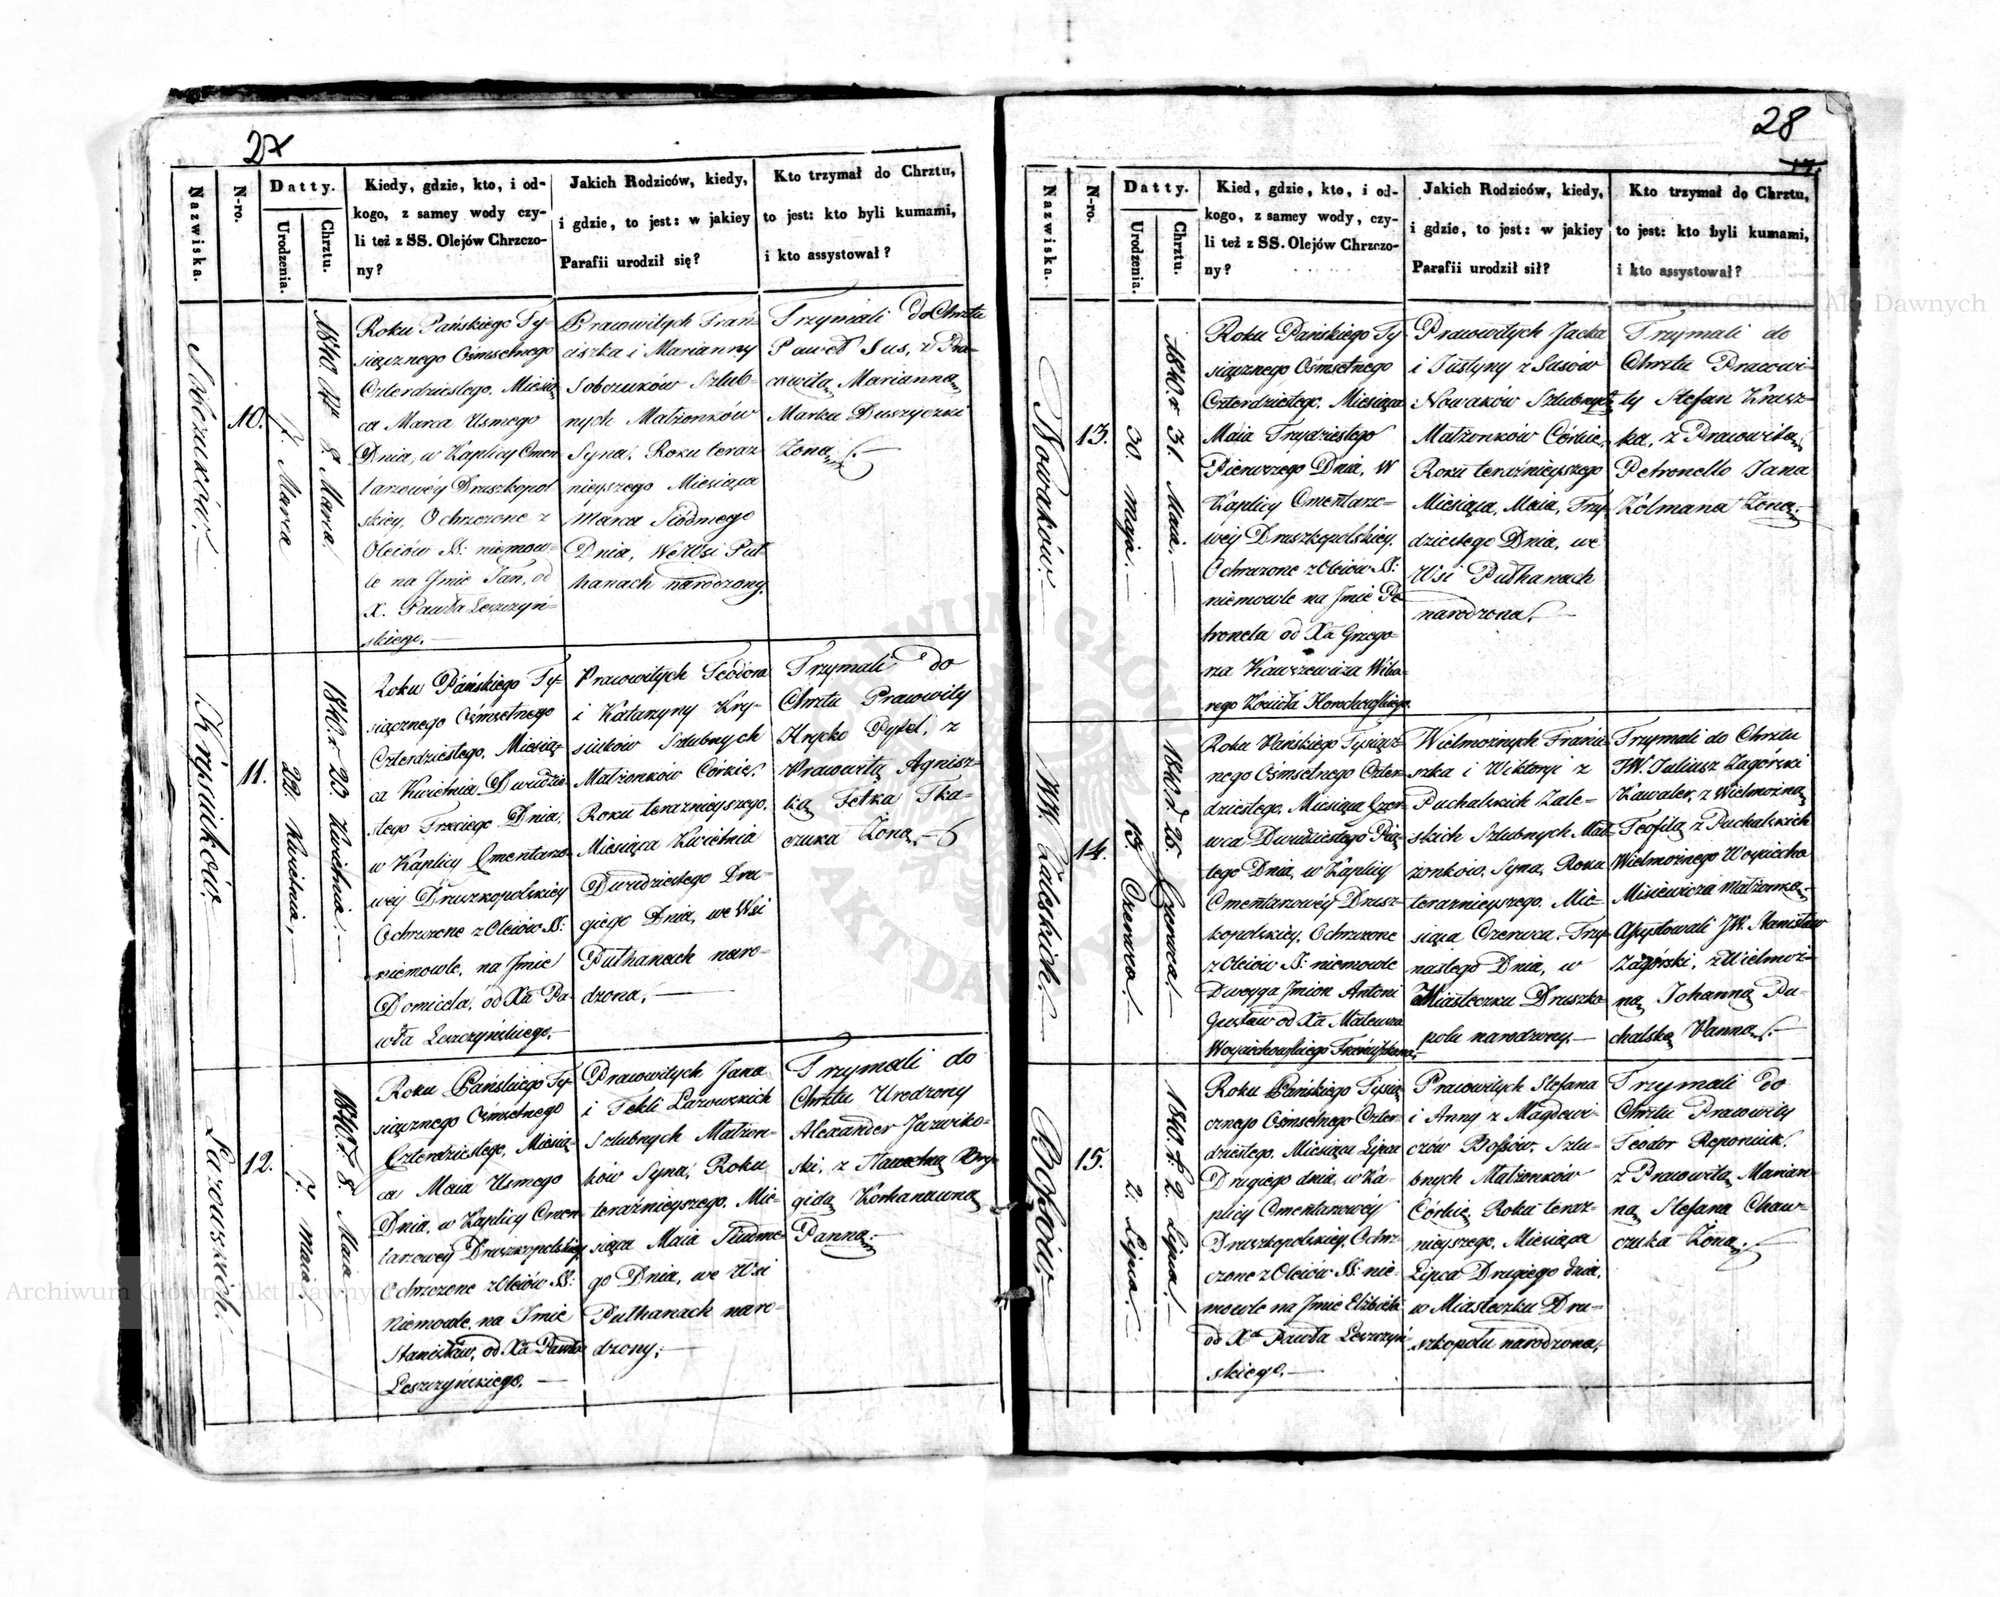 27
Nazwiska.
N-ro.
Datty.
Urodzenia.
Chrztu.
Kiedy, gdzie, kto, i od-
kogo, z samey wody czy-
li też z SS. Olejów Chrzczo-
ny?
Jakich Rodziców, kiedy,
i gdzie, to jest: w jakiey
Parafii urodził się?
Kto trzymał do Chrztu,
to jest: kto byli kumami,
i kto assystował?
Sobczuków.
10.
7. Marca
1840. 8. Marca.
Roku Pańskiego Ty-
siącznego Ośmsetnego
Czterdziestego, Miesią-
ca Marca Usmego
Dnia, w Kaplicy Cmen-
tarzowéy Druszkopol-
skiey, Ochrzczone z
Oleiów SS: niemow-
le na Jmie Jan, od
X. Pawła Leszczyń-
skiego.
Pracowitych Fran-
ciszka i Marianny
Sobczuków Szlub-
nych Małżonków
Syna, Roku teraz-
nieyszego Miesiąca
Marca Siódmego
Dnia, We Wsi Puł-
hanach narodzony.
Trzymali do Chrztu
Paweł Sus, z Pra-
cowitą Marianną
Marka Duszyczki
Żoną
Krysiuków.
11.
22. Kwietnia,
1840. r 23. Kwietnia.
Roku Pańskiego Ty-
siącznego Ośmsetnego
Czterdziestego, Miesią-
ca Kwietnia Dwudzie-
stego Trzeciego Dnia,
w Kaplicy Cmentarzo-
wéy Druszkopolskiey
Ochrzczone z Oleiów SS:
niemowle, na Jmie
Domicela, od Xa Pa-
wła Leszczyńskiego.
Pracowitych Teodora
i Katarzyny Kry-
siuków Szlubnych
Małżonków Córkię,
Roku teraznieyszego,
Miesiąca Kwietnia
Dwudziestego Dru-
giego Dnia, we Wsi
Pułhanach naro-
dzona.
Trzymali do
Chrztu Pracowity
Hryćko Pytel, z
Pracowitą Agnisz-
ką Fetka Tka-
czuka Żoną.
Łazowskich.
12.
7. Maia
1840. r. 8. Maia
Roku Pańskiego Ty-
siącznego Ośmsetnego
Czterdziestego, Miesią-
ca Maia Usmego
Dnia, w Kaplicy Cmen-
tarzowey Druszkopolskiey
Ochrzczone z Oleiów SS:
Niemowle, na Jmie
Stanisław, od Xa Pawła
Leszczyńskiego.
Pracowitych Jana
i Tekli Łazowskich
Szlubnych Małżon-
ków Syna, Roku
teraźnieyszego, Mie-
siąca Maia Siudme-
go Dnia, we Wsi
Pułhanach naro-
dzony.
Trzymali do
Chrztu Urodzony
Alexander Jazwiko-
ski, z Sławetną Bry-
gidą Korkanawną
Panną.
28
17.
Nazwiska.
N-ro.
Datty.
Urodzenia.
Chrztu.
Kied, gdzie, kto, i od-
kogo, z samey wody, czy-
li też z SS. Olejów Chrzczo-
ny?
Jakich Rodziców, kiedy,
i gdzie, to jest: w jakiey
Parafii urodził sił?
Kto trzymał do Chrztu,
to jest: kto byli kumami,
i kto assystował?
Nowaków.
13.
30. Maja.
1840. r 31. Maia.
Roku Pańskiego Ty-
siącznego Ośmsetnego
Czterdziestego, Miesiąca
Maia Trzydziestego
Pierwszego Dnia, W
Kaplicy Cmentarzo-
wéy Druszkopolskiey,
Ochrzczone z Oleiów SS:
niemowle na Jmie Pe-
tronela od Xa Grzego-
rza
Pracowitych Jacka
i Justyny z Susów
Nowaków Szlubnych
Małżonków Córkię,
Roku teraźnieyszego
Miesiąca, Maia, Trzy-
dziestego Dnia, we
Wsi Pułhanach
narodzona.
Trzymali do
Chrztu Pracowi-
ty Stefan Krusz-
ka, z Pracowitą
Petronello Jana
Kolmana Żoną.
WW. Zaleskich.
14.
13. Czerwca.
1840. r 25. Czerwca.
Roku Pańskiego Tysiącz-
nego Ośmsetnego Czter-
dziestego, Miesiąca Czer-
wca Dwudziestego Pią-
tego Dnia, w Kaplicy
Cmentarzowéy Drusz-
kopolskiey, Ochrzczone
z Oleiów SS: niemowle
Dwoyga Jmion Antoni
Gustaw od Xa Mateusza
Woyciechowskiego
Wielmożnych Franci-
szka i Wiktoryi z
Puchalskich Zale-
skich Szlubnych Mał-
żonków, Syna, Roku
teraznieyszego, Mie-
siąca Czerwca, Trzy-
nastego Dnia, w
Miasteczku Druszko-
polu narodzony.
Trzymali do Chrztu
JW. Juliusz Zagórski
Kawaler, z Wielmożną
Teofilą z Puchalskich
Wielmożnego Woyciecha
Misiewicza Małżonką.
Assystowali JW. Stanisław
Zagórski, z Wielmoż-
ną Johanną Pu-
chalską Panną.
Bossów.
15.
2. Lipca.
1840. r. 2. Lipca.
Roku Pańskiego Tysią-
cznego Ośmsetnego Czter-
dziestego, Miesiąca Lipca
Drugiego dnia, w Ka-
plicy Cmentarzowéy
Druszkopolskiey, Ochrz-
czone z Oleiów SS: nie-
mowle na Jmie Elżbieta
od Xa Pawła Leszczyń-
skiego.
Pracowitych Stefana
i Anny z Magdewi-
czów Bossów, Szlu-
bnych Małżonków
Córkię, Roku teraz-
nieyszego, Miesiąca
Lipca Drugiego dnia,
w Miasteczku Dru-
szkopolu narodzona.
Trzymali do
Chrztu Pracowity
Teodor Reponiuk,
z Pracowitą Marian-
ną Stefana Chaw-
czuka Żoną.
Archiwum Główne Akt Dawnych
Archiwum Główne Akt Dawnych
ARCHIWUM GŁÓWNE AKT DAWNYCH